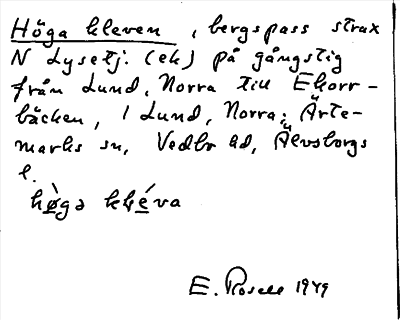 Höga kleven, bergspass strax
N Lysetj. (ek) på gångstig
från Lund, Norra till Ekorr-
bäcken, i Lund, Norra; Ärte-
marks sn, Vedbo hd, Älvsborgs
l.
hø̀gə klé̱va
E. Rosell 1949